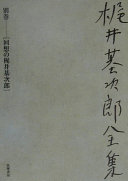 梶井基次郎全集
別巻
回想の梶井基次郎
筑摩書房